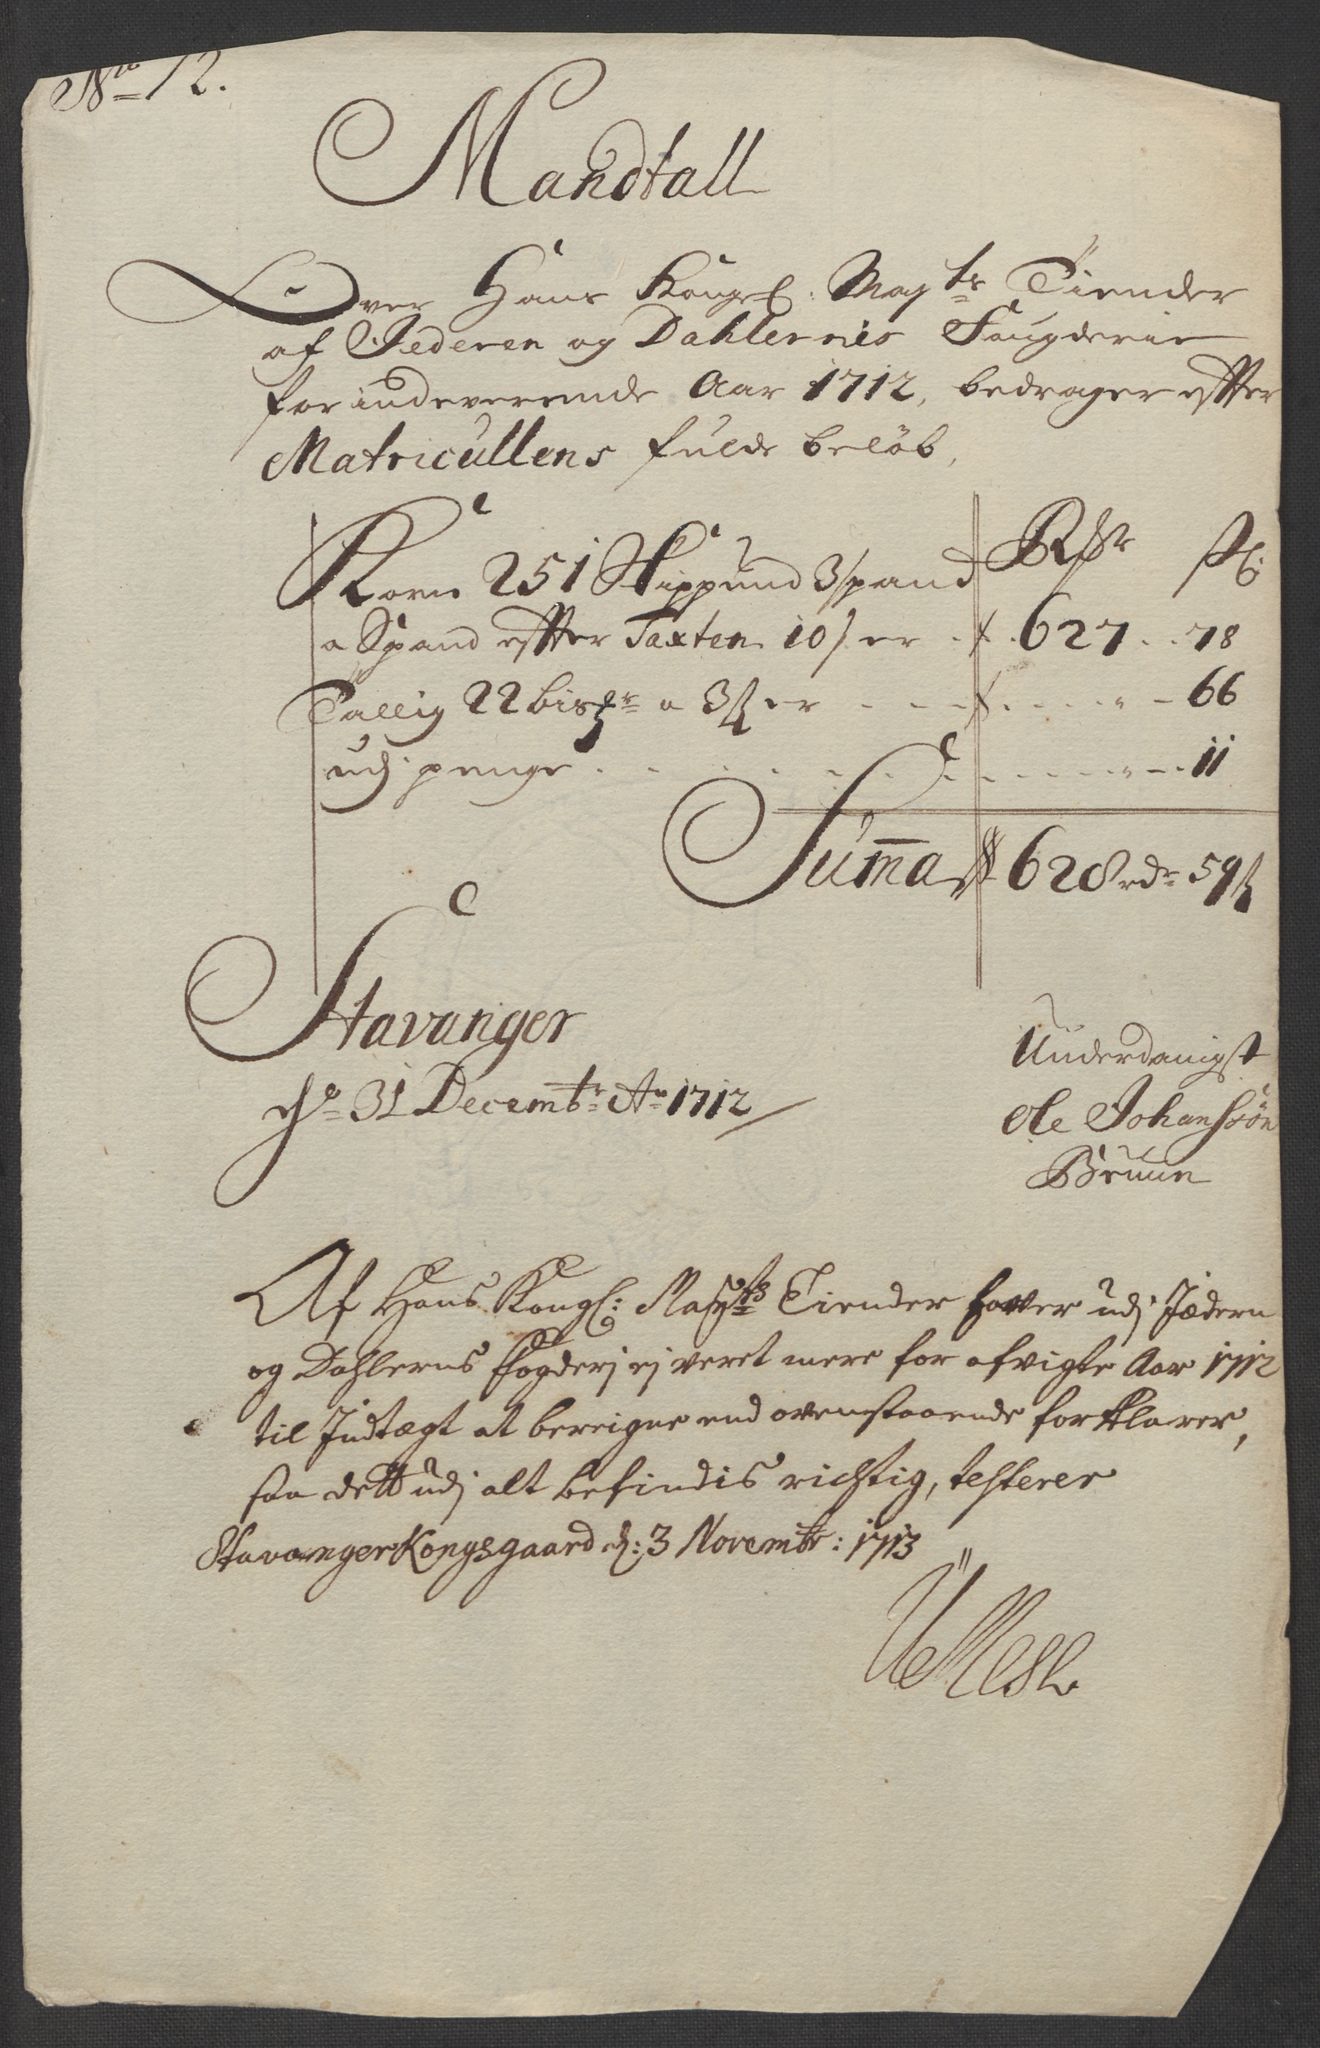 No 12.
Mandtall
Over Hans Kongl: Mayts Tiender
af Jederen og Dahlernis Fougderie
for indeverende Aar 1712, bedrager effter
Matricullens fulde beløb,
Rdr ß:
Korn 251 Skippund 3 spand
a Spand effter Taxten 10 ß er 627 78
Tallig 22 bismr a 3 ß er 66
udj penge 11
Summa 628 rdr 59 ß
Stavanger
de 31 Decembr Ao 1712
Underdanigst
Ole Johanssøn
Bruun
Af Hans Kongl: Mayts Tiender hafver udj Jædern
og Dahlerns Fogderj ej veret mere for afvigte Aar 1712
til Indtægt at bereigne end ovenstaaende forklarer,
saa dett udj alt befindis richtig, testerer
Stavanger Kongsgaard d: 3 Novembr: 1713